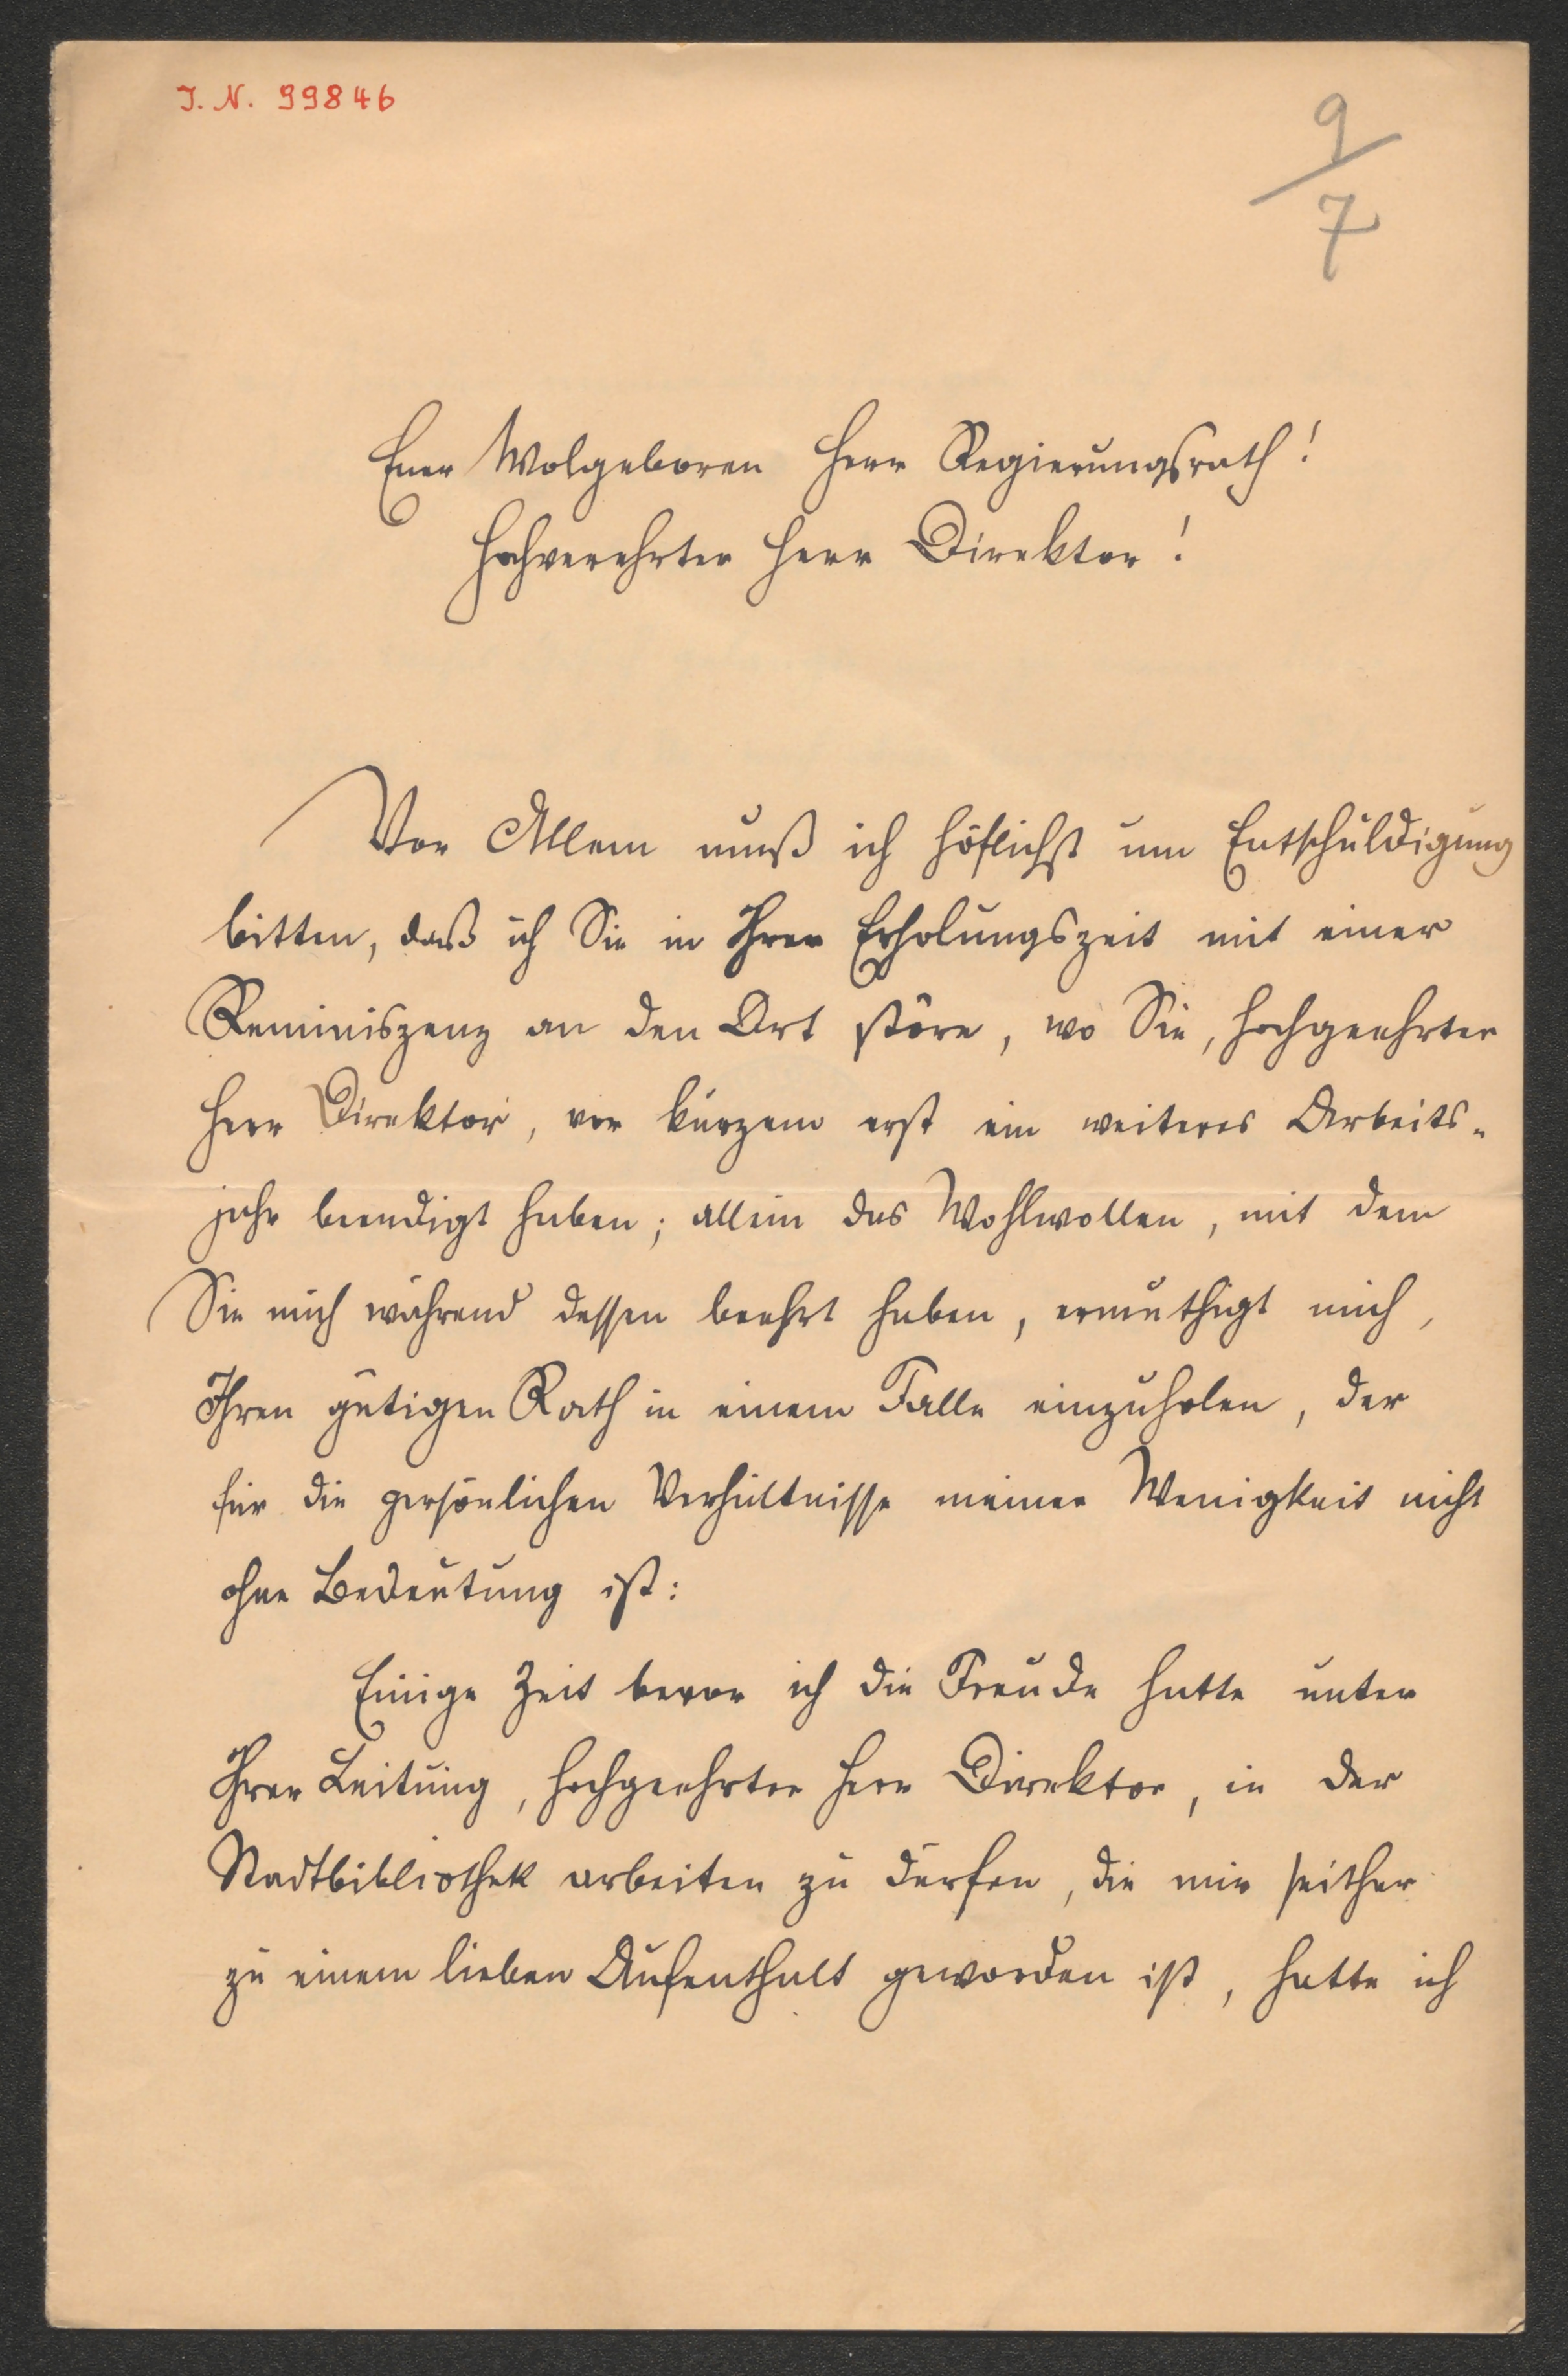 J. N. 99846
9/7
Euer Wolgeboren Herr Regierungsrath!
Hochverehrter Herr Direktor!
Vor Allem muß ich höflichst um Entschuldigung
bitten, daß ich Sie in Ihrer Erholungszeit mit einer
Reminiszenz an den Ort störe, wo Sie, hochgeehrter
Herr Direktor, vor kurzem erst ein weiteres Arbeits-
jahr beendigt haben; allein das Wohlwollen, mit dem
Sie mich während dessen beehrt haben, ermuthigt mich,
Ihren gütigen Rath in einem Falle einzuholen, der
für die persönlichen Verhältnisse meiner Wenigkeit nicht
ohne Bedeutung ist:
Einige Zeit bevor ich die Freude hatte unter
Ihrer Leitung, hochgeehrter Herr Direktor, in der
Stadtbibliothek arbeiten zu dürfen, die mir seither
zu einem lieben Aufenthalt geworden ist, hatte ich